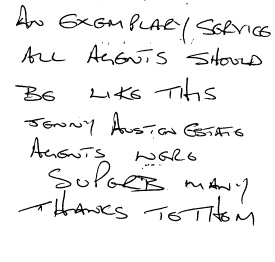 AN EXEMPLARY SERVICE
ALL AGENTS SHOULD
BE LIKE THIS
JENNY AUSTIN ESTATE
AGENTS WERE
SUPERB MANY
THANKS TO THEM